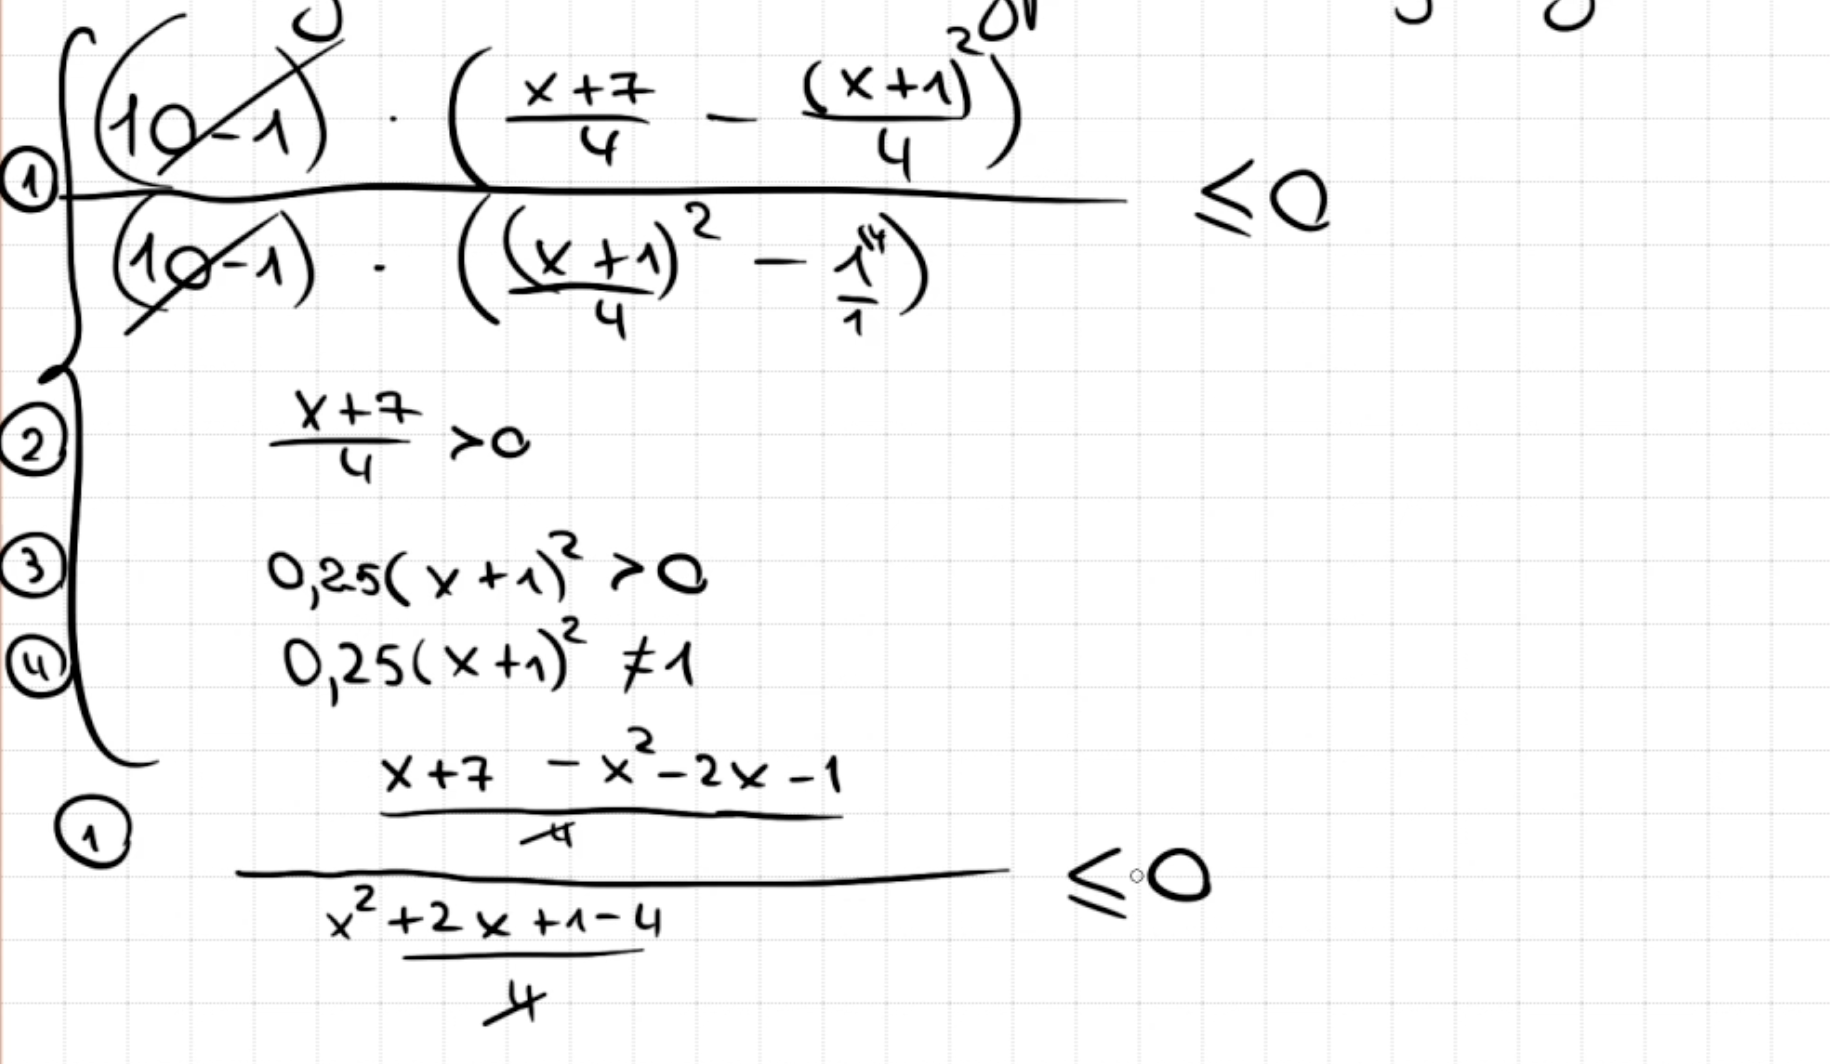 ① (10-1) · ((x+7)/4 - (x+1)²/4)
/ (10-1) · ((x+1)²/4 - 1/1) ≤ 0
② (x+7)/4 > 0
③ 0,25(x+1)² > 0
④ 0,25(x+1)² ≠ 1
① (x+7 - x² - 2x - 1)/4
/ (x² + 2x + 1 - 4)/4 ≤ 0